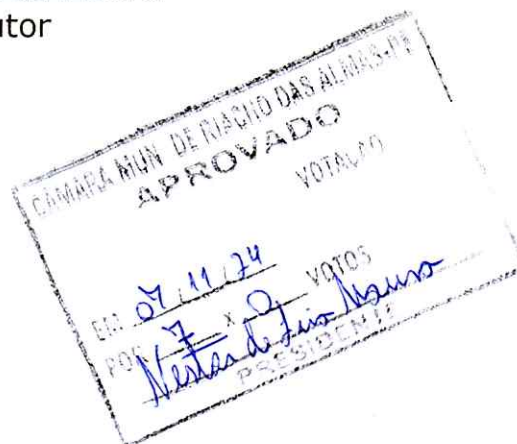 utor
CAMARA MUN DE RIACHO DAS ALMAS-PE
APROVADO
VOTAÇÃO
EM 07/11/24
POR 7 x 0 VOTOS
PRESIDENTE